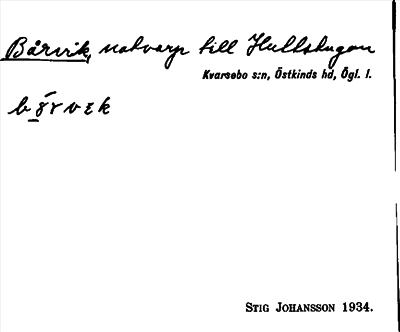 Bårvik, notvarp till Hultskugan
Kvarsebo s:n, Östkinds hd, Ögl. l.
STIG JOHANSSON 1934.